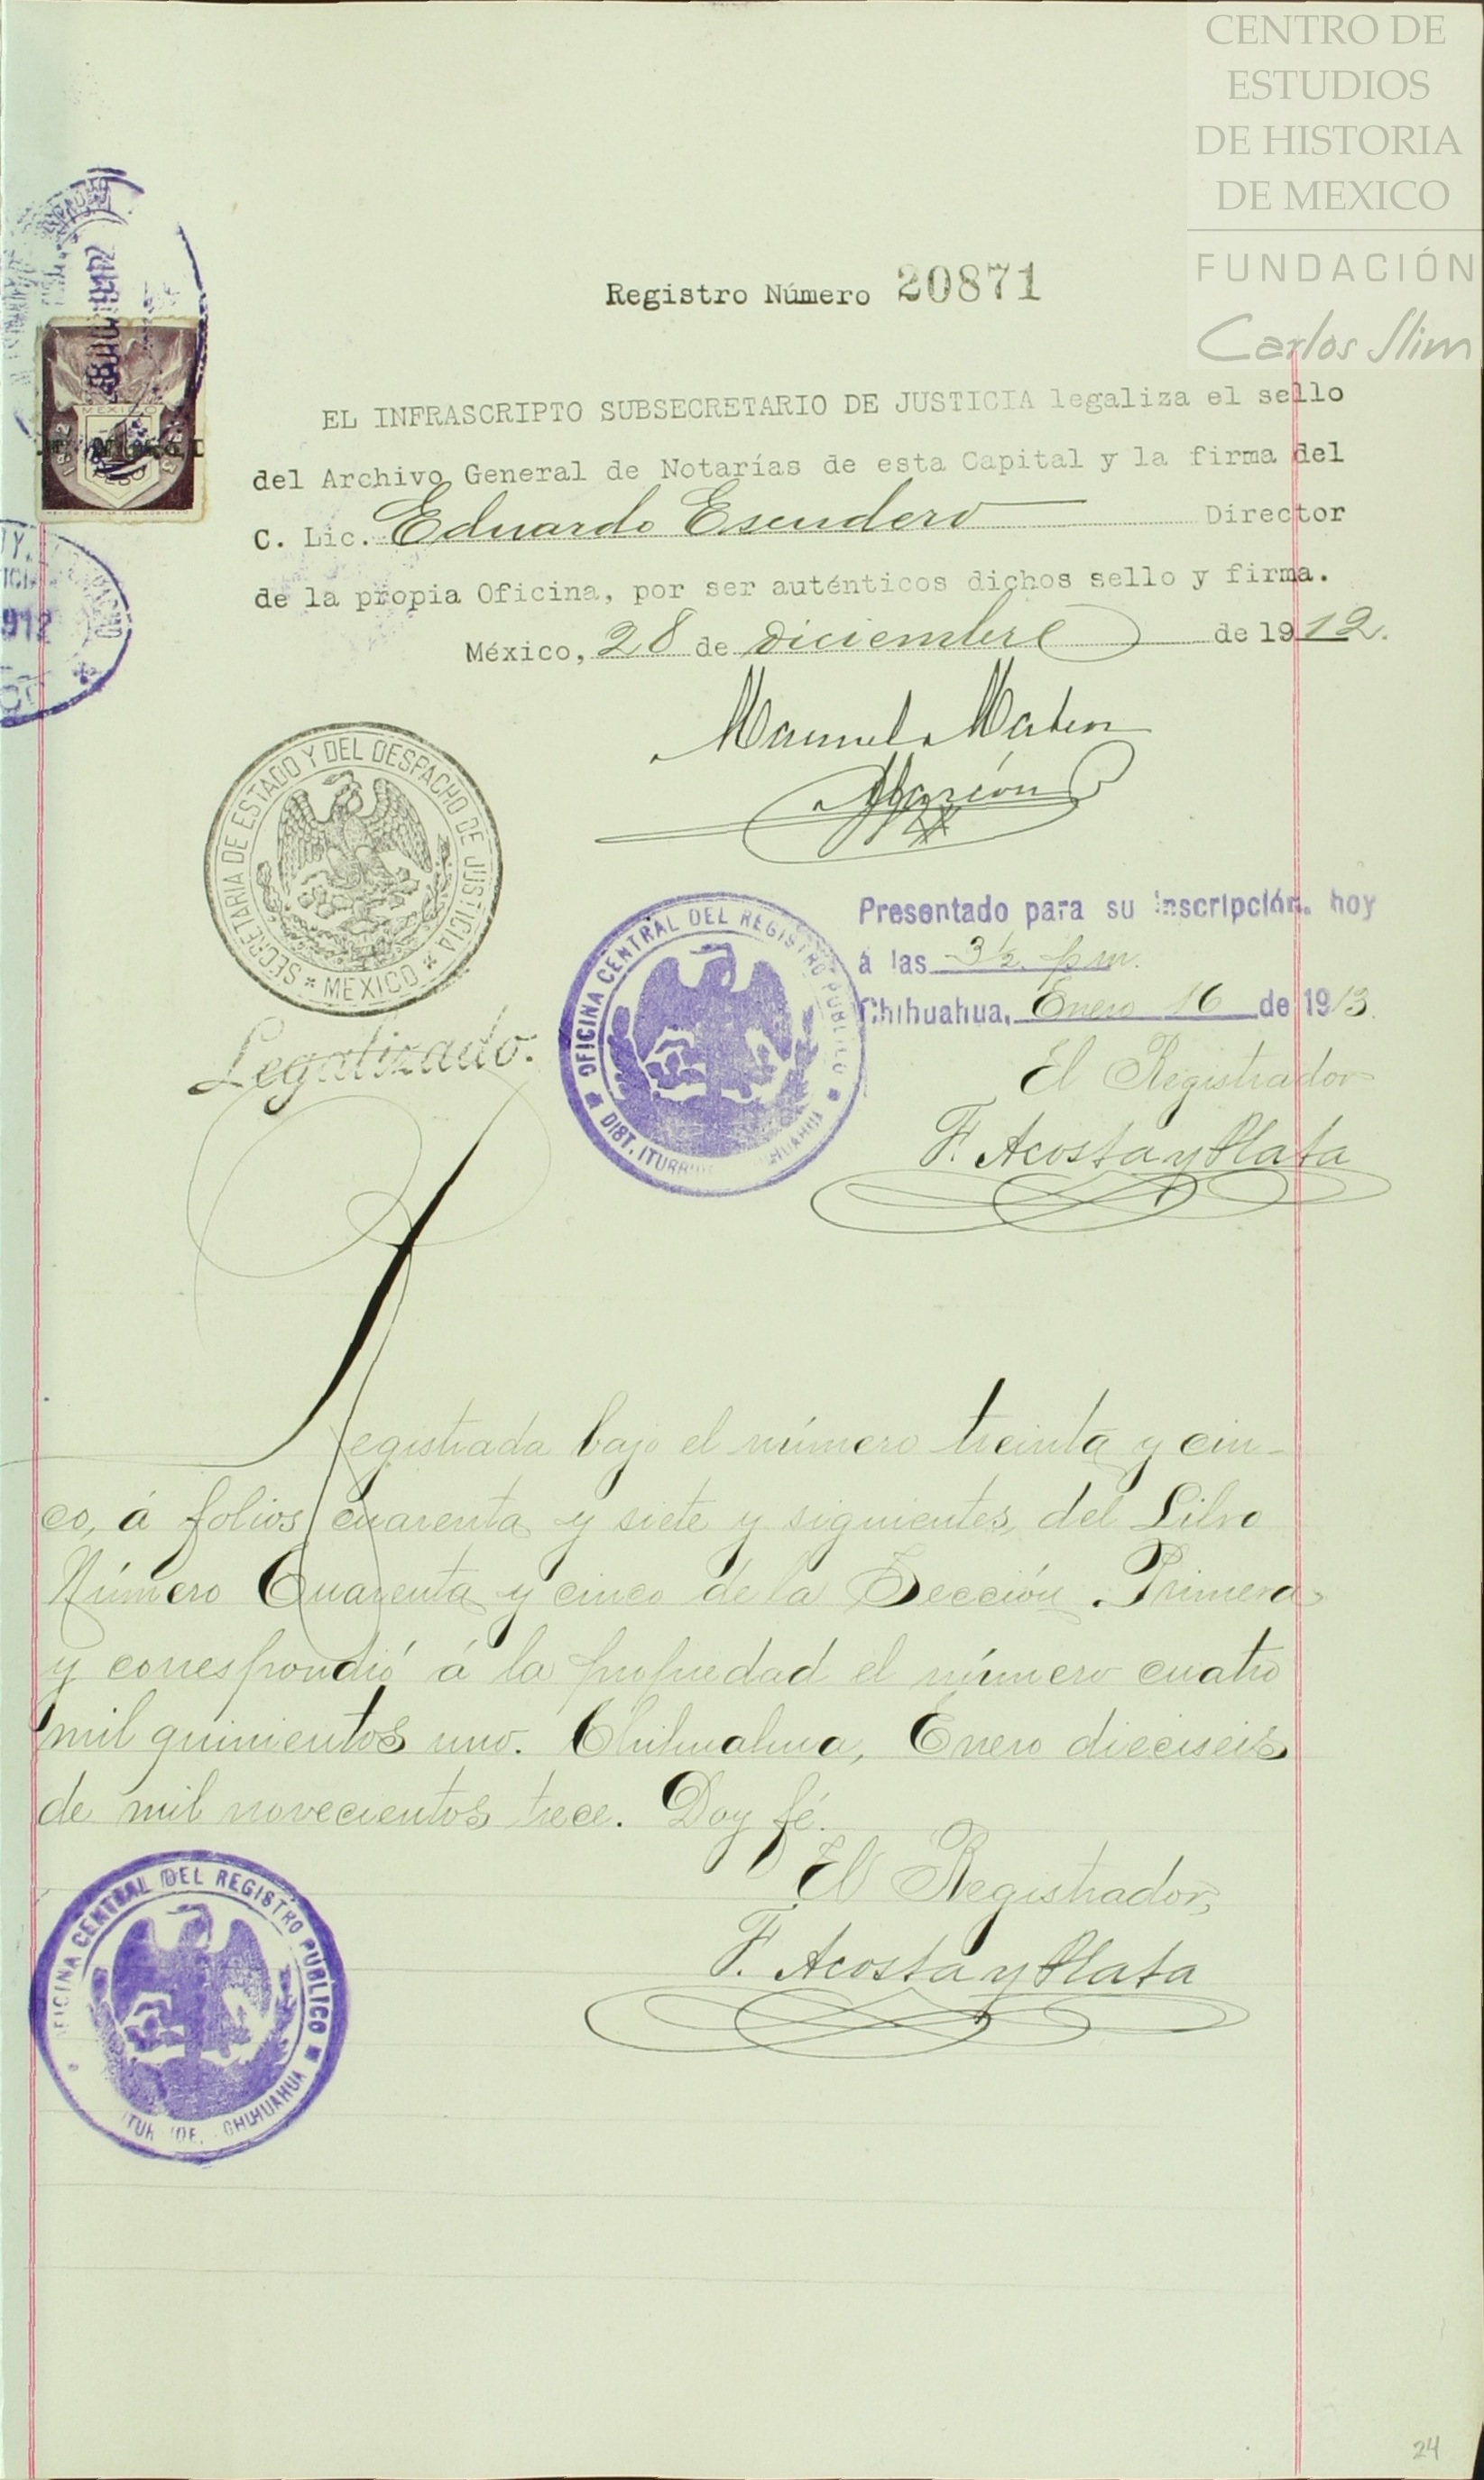 CENTRO DE
ESTUDIOS
DE HISTORIA
DE MEXICO
FUNDACIÓN
Carlos Slim
Registro Número 20871
EL INFRASCRIPTO SUBSECRETARIO DE JUSTICIA legaliza el sello
del Archivo General de Notarías de esta Capital y la firma del
C. Lic. Eduardo Escudero Director
de la propia Oficina, por ser auténticos dichos sello y firma.
México, 28 de Diciembre de 1912.
MEXICO
Manuel
SECRETARIA DE ESTADO Y DEL DESPACHO DE JUSTICIA * MEXICO *
Legalizado.
OFICINA CENTRAL DEL REGISTRO PUBLICO
DIST. ITURBIDE CHIHUAHUA
Presentado para su inscripción, hoy
á las 3½ p m.
Chihuahua, Enero 16 de 1913.
El Registrador
F. Acosta y Plata
Registrada bajo el número treinta y cin-
co, á folios cuarenta y siete y siguientes, del Libro
Número Cuarenta y cinco de la Sección Primera
y correspondió á la propiedad el número cuatro
mil quinientos uno. Chihuahua, Enero dieciseis
de mil novecientos trece. Doy fé.
El Registrador,
F. Acosta y Plata
OFICINA CENTRAL DEL REGISTRO PUBLICO
CHIHUAHUA
24